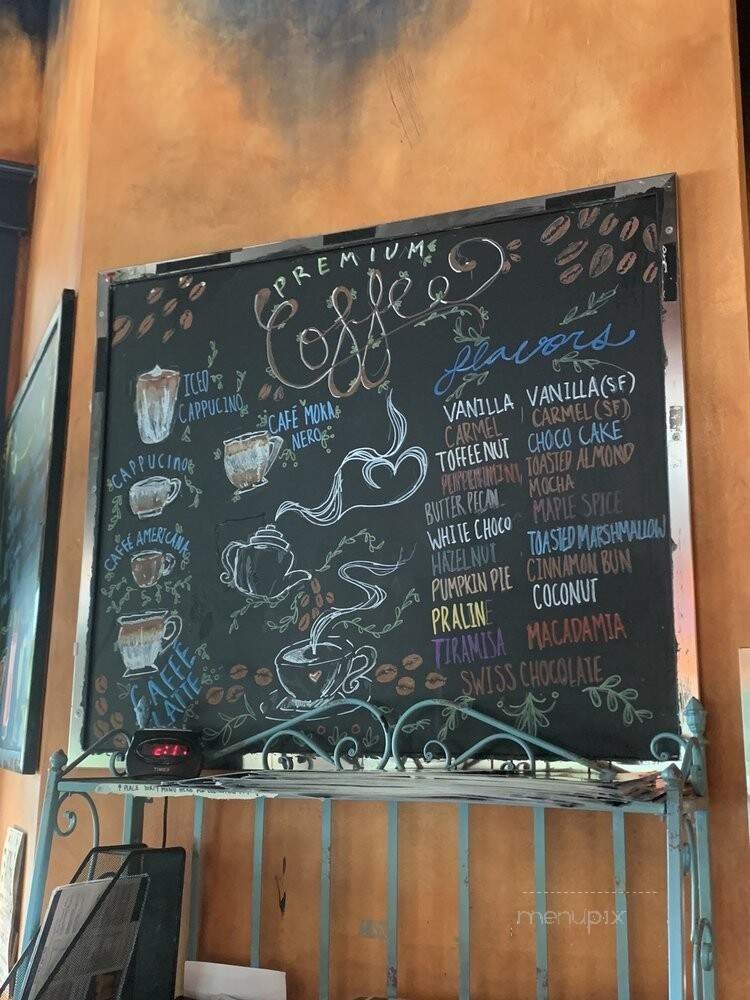 PREMIUM
Coffee
flavors
ICED
CAPPUCINO
CAFÉ MOKA
NERO
CAPPUCINO
CAFFE AMERICANA
CAFFE
LATTE
VANILLA
CARMEL
TOFFEE NUT
BUTTER PECAN
WHITE CHOCO
HAZELNUT
PUMPKIN PIE
PRALINE
TIRAMISA
VANILLA (SF)
CARMEL (SF)
CHOCO CAKE
TOASTED ALMOND
MOCHA
MAPLE SPICE
TOASTED MARSHMALLOW
CINNAMON BUN
COCONUT
MACADAMIA
SWISS CHOCOLATE
TIMEX
menupix